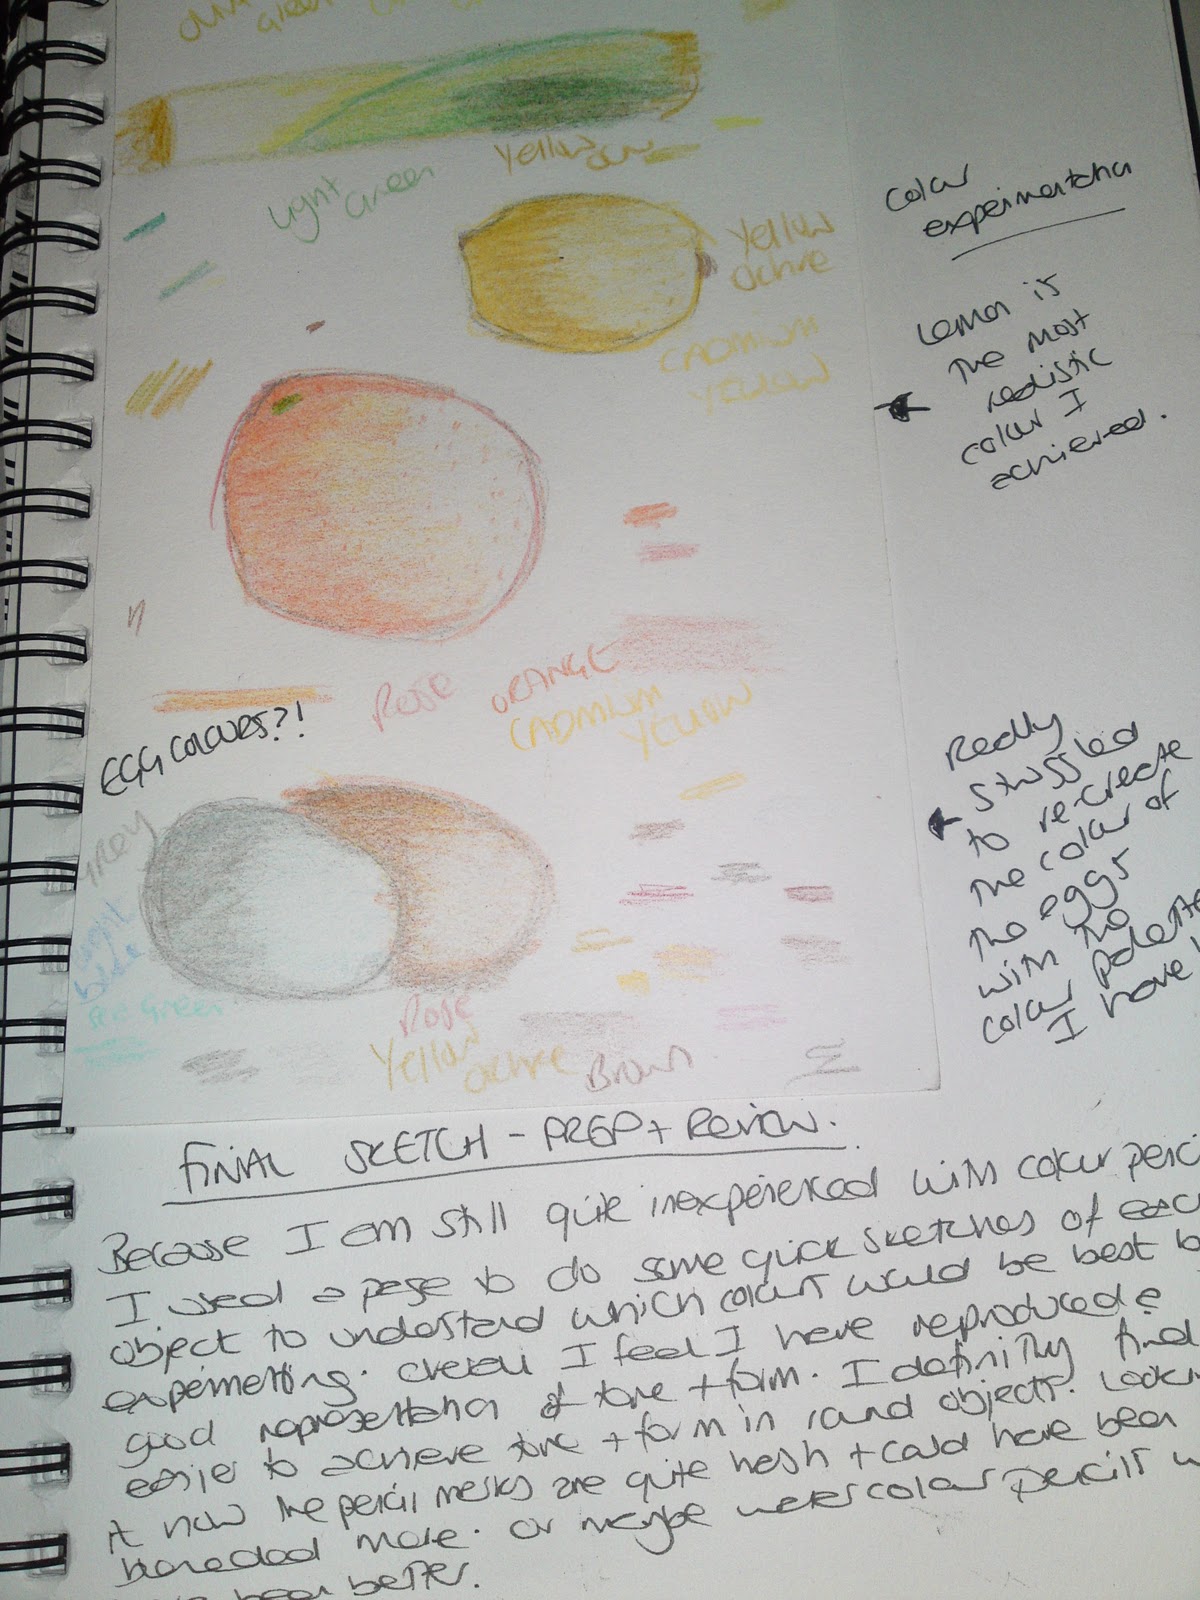 Green
Light
Green
Yellow
Yellow
Ochre
CADMIUM
YELLOW
Colour
experimentation
Lemon is
the most
realistic
colour I
achieved.
ROSE
ORANGE
CADMIUM
YELLOW
EGG COLOURS?!
GREY
light
blue
sea Green
Rose
Yellow
Ochre
Brown
Really
struggled
to re-create
the colour of
the eggs
with the
colour palette
I have
FINAL SKETCH - PREP + REVIEW.
Because I am still quite inexperienced with colour
I used a page to do some quick sketches of
object to understand which colours would be best
experimenting. Overall I feel I have reproduced a
good representation of tone + form. I definitly find
easier to achieve tone + form in round objects.
it now the pencil marks are quite harsh + could have been
more. Or maybe watercolour pencils
been better.